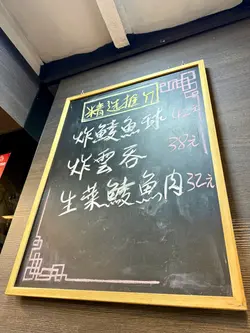 精选推介
炸鲮魚球 42元
炸雲吞 38元
生菜鲮魚肉 32元